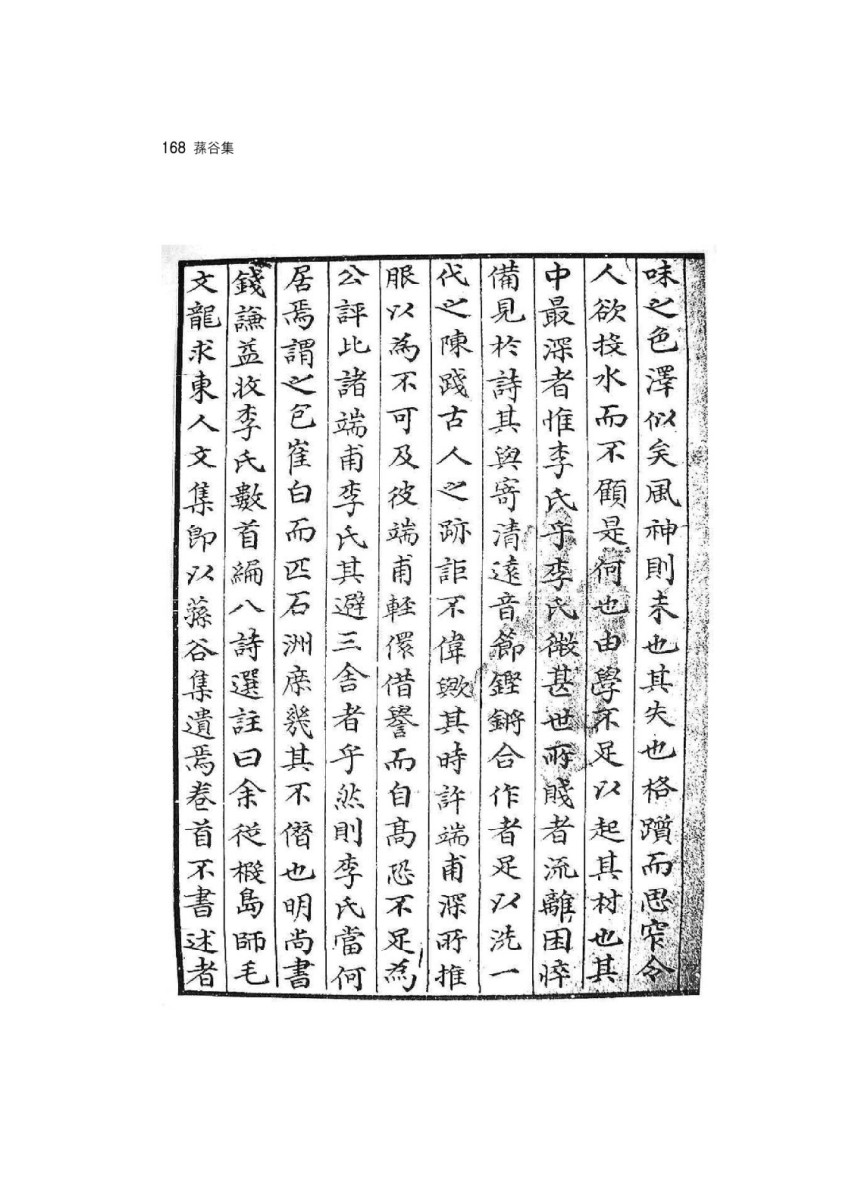 168 蓀谷集
味之色澤似矣風神則未也其失也格躓而思窄令
人欲投水而不顧是何也由學不足以起其材也其
中最深者惟李氏乎李氏微甚世所賤者流離困悴
備見於詩其興寄淸遠音節鏗鏘合作者足以洗一
代之陳踐古人之跡詎不偉歟其時許端甫深所推
服以爲不可及彼端甫輕儇借譽而自高恐不足爲
公評比諸端甫李氏其避三舍者乎然則李氏當何
居焉謂之包崔白而匹石洲庶幾其不僭也明尚書
錢謙益收李氏數首編八詩選註曰余從椵島師毛
文龍求東人文集卽以蓀谷集遺焉卷首不書述者